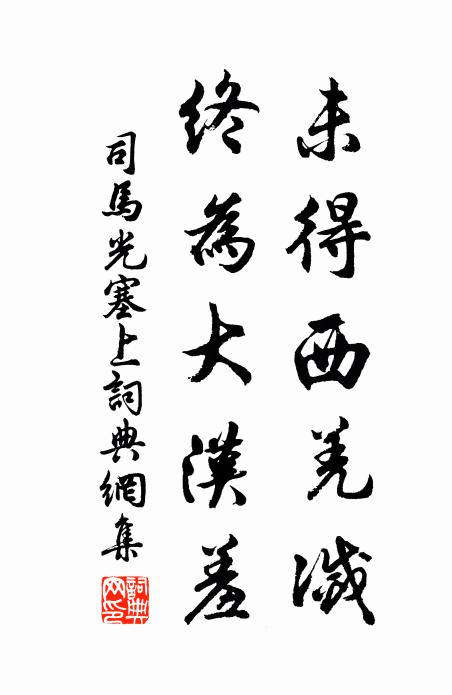 未得西羌滅
終為大漢羞
司馬光塞上詞典網集
詞典
网印